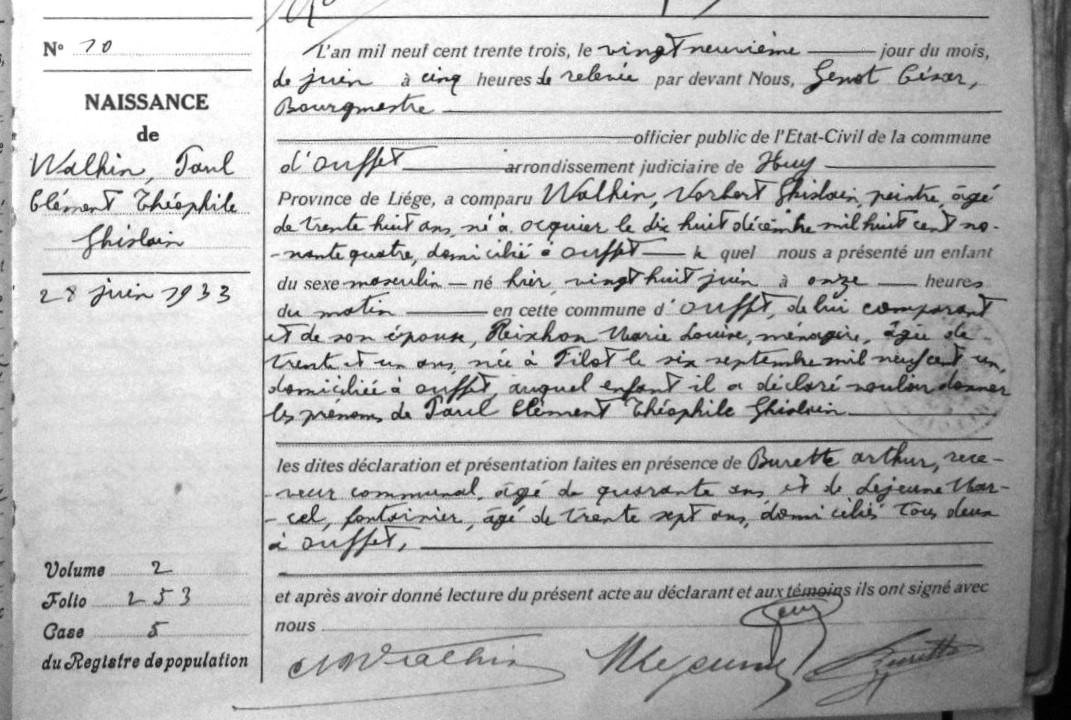 N° 10
NAISSANCE
de
Walhin, Paul
Clément Théophile
Ghislain
28 juin 1933
Volume 2
Folio 253
Case 5
du Registre de population
L'an mil neuf cent trente trois, le vingt neuvième jour du mois,
de juin à cinq heures de relevée par devant Nous, Genot César,
Bourgmestre
officier public de l'Etat-Civil de la commune
d'Ouffet arrondissement judiciaire de Huy
Province de Liége, a comparu Walhin, Norbert Ghislain, peintre, âgé
de trente huit ans, né à Ocquier le dix huit décembre mil huit cent no-
-nante quatre, domicilié à Ouffet le quel nous a présenté un enfant
du sexe masculin né hier, vingt huit juin à onze heures
du matin en cette commune d'Ouffet, de lui comparant
et de son épouse, Heixhon Marie Louise, ménagère, âgée de
trente et un ans, née à Filot le six septembre mil neuf cent un,
domiciliée à Ouffet, auquel enfant il a déclaré vouloir donner
les prénoms de Paul Clément Théophile Ghislain
les dites déclaration et présentation faites en présence de Burette Arthur, rece-
-veur communal, âgé de quarante ans, et de Lejeune Mar-
-cel, fontainier, âgé de trente sept ans, domiciliés tous deux
à Ouffet,
et après avoir donné lecture du présent acte au déclarant et aux témoins ils ont signé avec
nous
Walhin MLejeune Burette